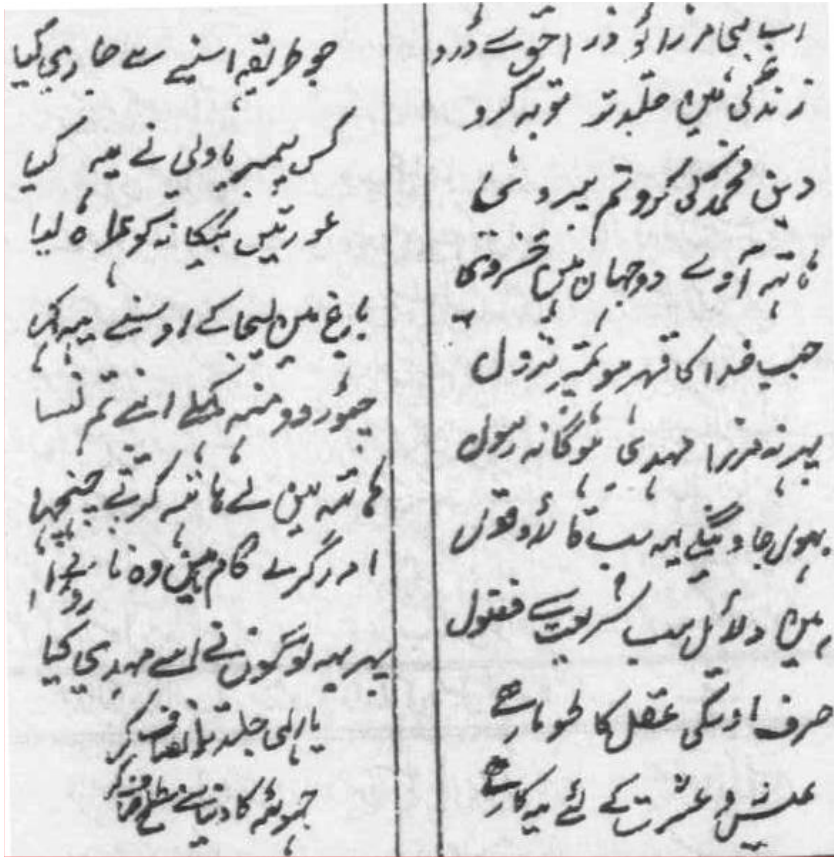 اب بھی مرزائو ذرا حق سے ڈرو
زندگی میں جلد تر توبہ کرو
دین محمد کی کرو تم پیروی
ہاتہ آوے دوجہان میں خسروی
جب خدا کا قہر ہو نزول
پہر نہ مرزا مہدی ہوگا نہ رسول
بہول جاوینگے یہ سب قا
ہین دلائل سب شریعت سے فضول
صرف اوسکی عقل کا طومار ہے
عیش و عشرت کے لئے یہ کار ہے
جو طریقہ اسنے ہے جاری کیا
کس پیمبر یا ولی نے یہ کیا
عورتیں بیگانہ کو ہمراہ لیا
باغ مین لیجا کے اوسنے یہ
چہوڑ دو منہ سے
ہاتہ مین لے ہاتہ کرتے
اور گرے کام مین وہ
پہر یہ لوگون نے اسے مہدی کیا
یا الہی جلد تو انصاف کر
جہوٹہ کا دنیا سے مطلع صاف کر